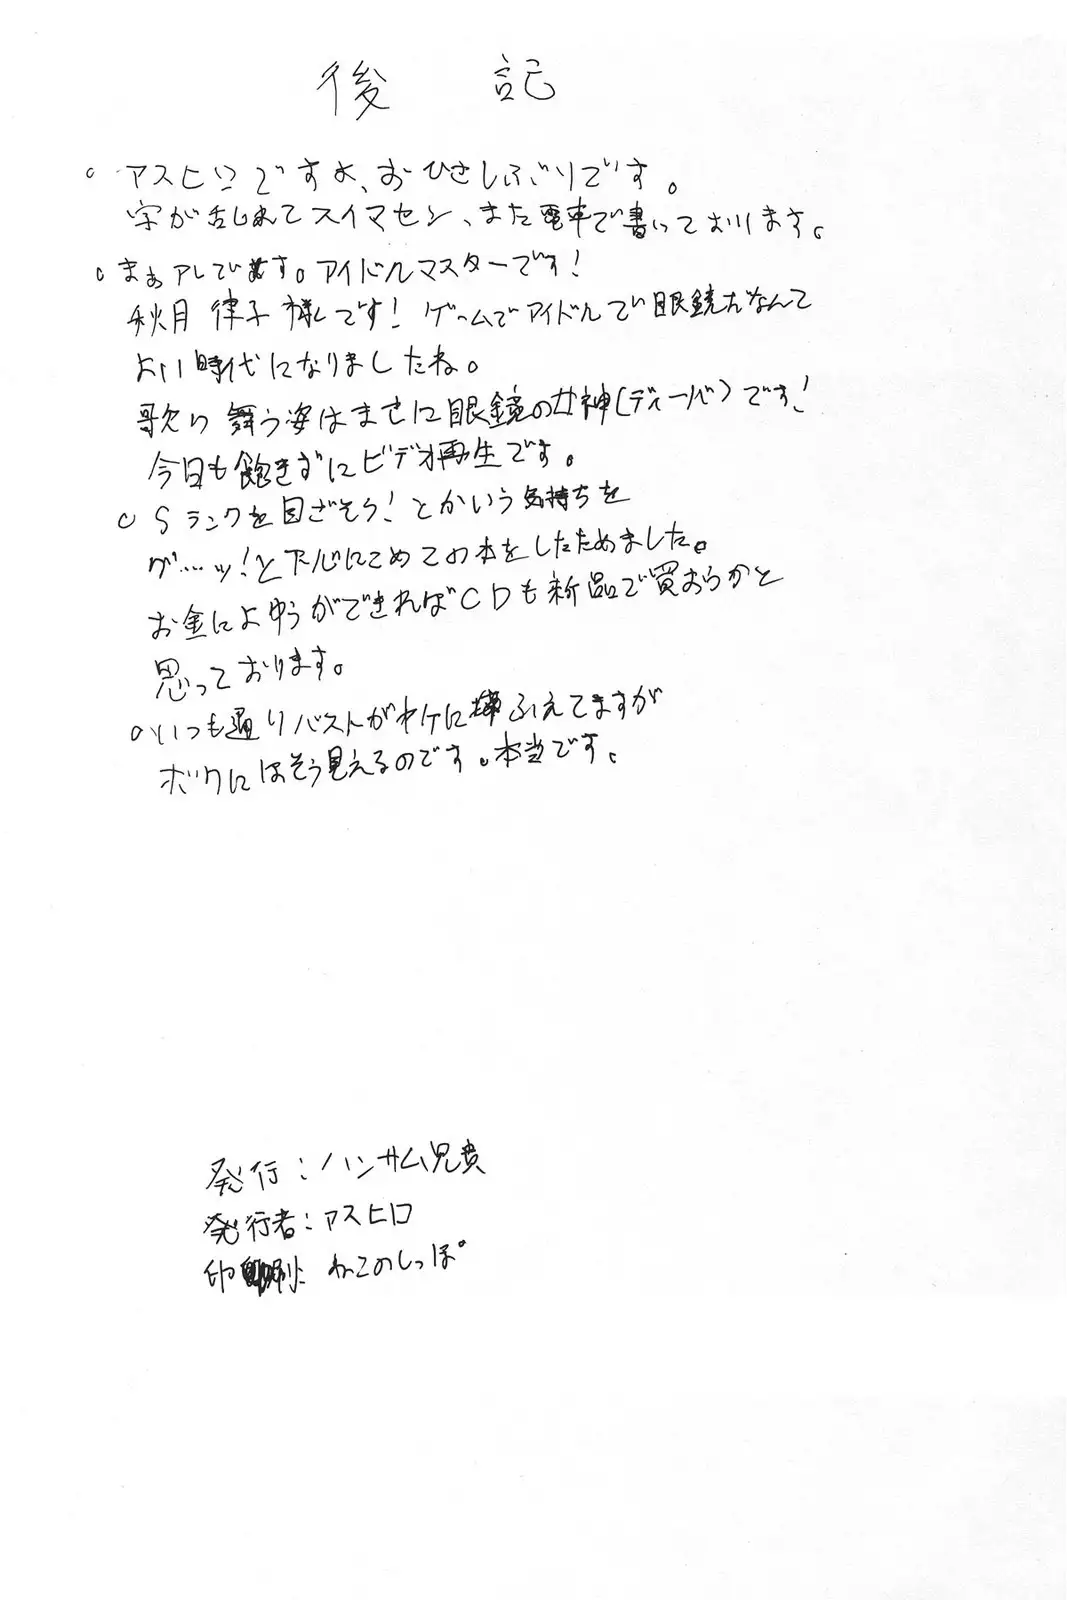 後記
。アスヒロですよ、おひさしぶりです。
字が乱れてスイマセン、また電車で書いております。
。まぁアレです。アイドルマスターです!
秋月 律子様です! ゲームでアイドルで眼鏡だなんて
よい時代になりましたね。
歌い 舞う姿はまさに眼鏡の女神(ディーバ)です!
今日も飽きずにビデオ再生です。
。Sランクを目ざそう! とかいう気持ちを
グ…ッ!と下心にこめてこの本をしたためました。
お金によゆうができればCDも新品で買おうかと
思っております。
。いつも通りバストがヤケにふえてますが
ボクにはそう見えるのです。本当です。
発行:ハンサム兄貴
発行者:アスヒロ
印刷: ねこのしっぽ